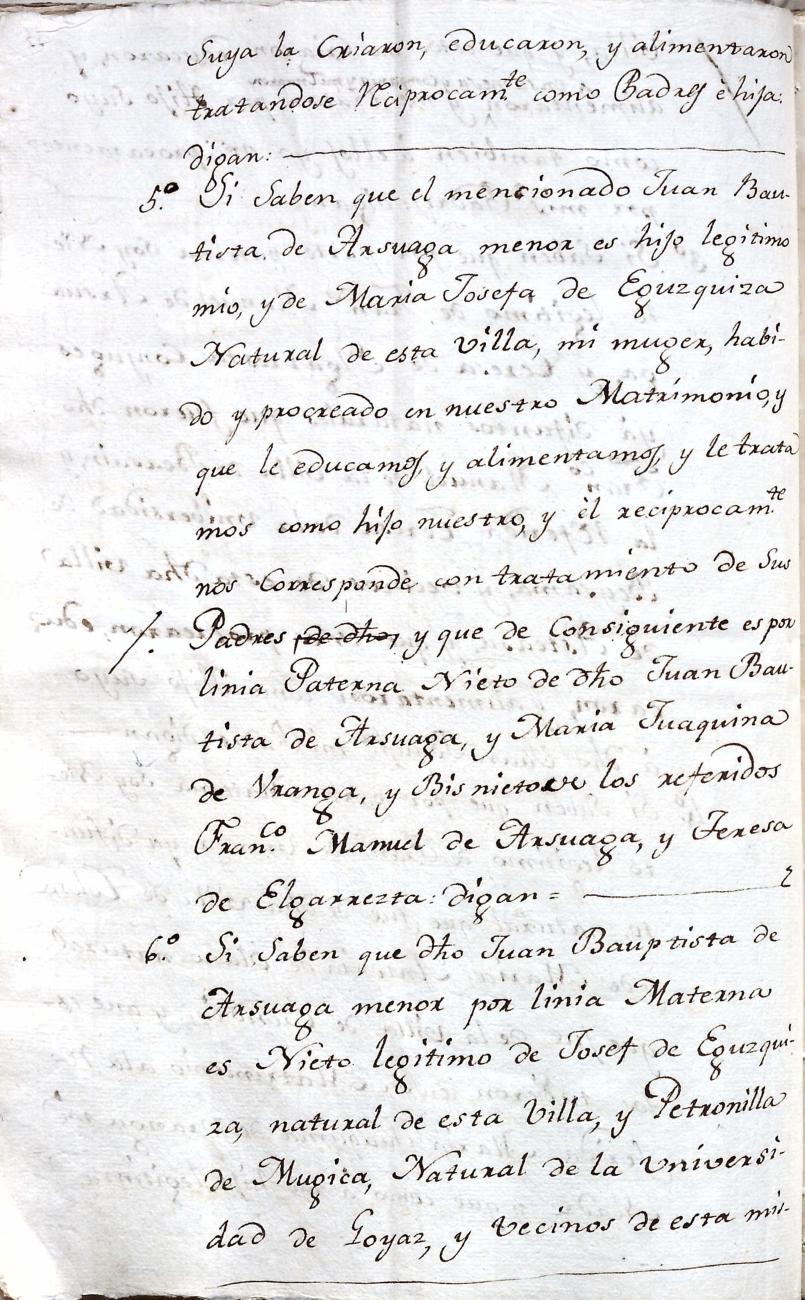 Suya la Criaron, educaron, y alimentaron
tratandose Reciprocam.te como Padres è hija:
digan:
5.º Si Saben que el mencionado Juan Bau-
tista de Arsuaga menor es hijo legitimo
mio, y de Maria Josefa de Eguzquiza
Natural de esta Villa, mi muger, habi-
do y procreado en nuestro Matrimonio, y
que le educamos, y alimentamos, y le trata
mos como hijo nuestro, y èl reciprocam.te
nos Corresponde con tratamiento de Sus
/. Padres de dho, y que de Consiguiente es por
linia Paterna Nieto de dho Juan Bau-
tista de Arsuaga, y Maria Juaquina
de Vranga, y Bisnieto de los referidos
Fran.co Manuel de Arsuaga, y Teresa
de Elgarrezta: digan =
6.º Si Saben que dho Juan Bauptista de
Arsuaga menor por linia Materna
es Nieto legitimo de Josef de Eguzqui-
za, natural de esta Villa, y Petronilla
de Mugica, Natural de la Vniversi-
dad de Goyaz, y Vecinos de esta mis-